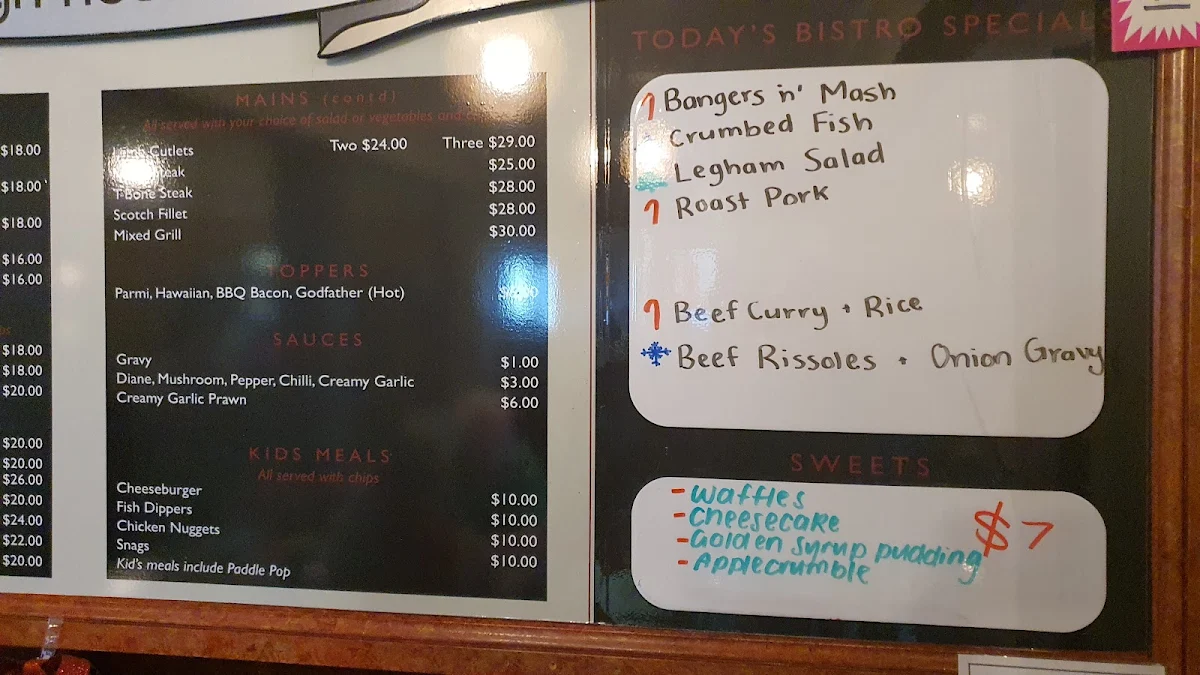 $18.00
$18.00
$18.00
$16.00
$16.00
$18.00
$18.00
$20.00
$20.00
$20.00
$26.00
$20.00
$24.00
$22.00
$20.00
MAINS (contd)
All served with your choice of salad or vegetables and
Cutlets Two $24.00 Three $29.00
$25.00
T-Bone Steak $28.00
Scotch Fillet $28.00
Mixed Grill $30.00
TOPPERS
Parmi, Hawaiian, BBQ Bacon, Godfather (Hot)
SAUCES
Gravy $1.00
Diane, Mushroom, Pepper, Chilli, Creamy Garlic $3.00
Creamy Garlic Prawn $6.00
KIDS MEALS
All served with chips
Cheeseburger $10.00
Fish Dippers $10.00
Chicken Nuggets $10.00
Snags $10.00
Kid's meals include Paddle Pop
TODAY'S BISTRO SPECIALS
Bangers n' Mash
Crumbed Fish
Legham Salad
Roast Pork
Beef Curry + Rice
Beef Rissoles + Onion Gravy
SWEETS
- Waffles
- Cheesecake
- Golden syrup pudding
- Applecrumble
$7